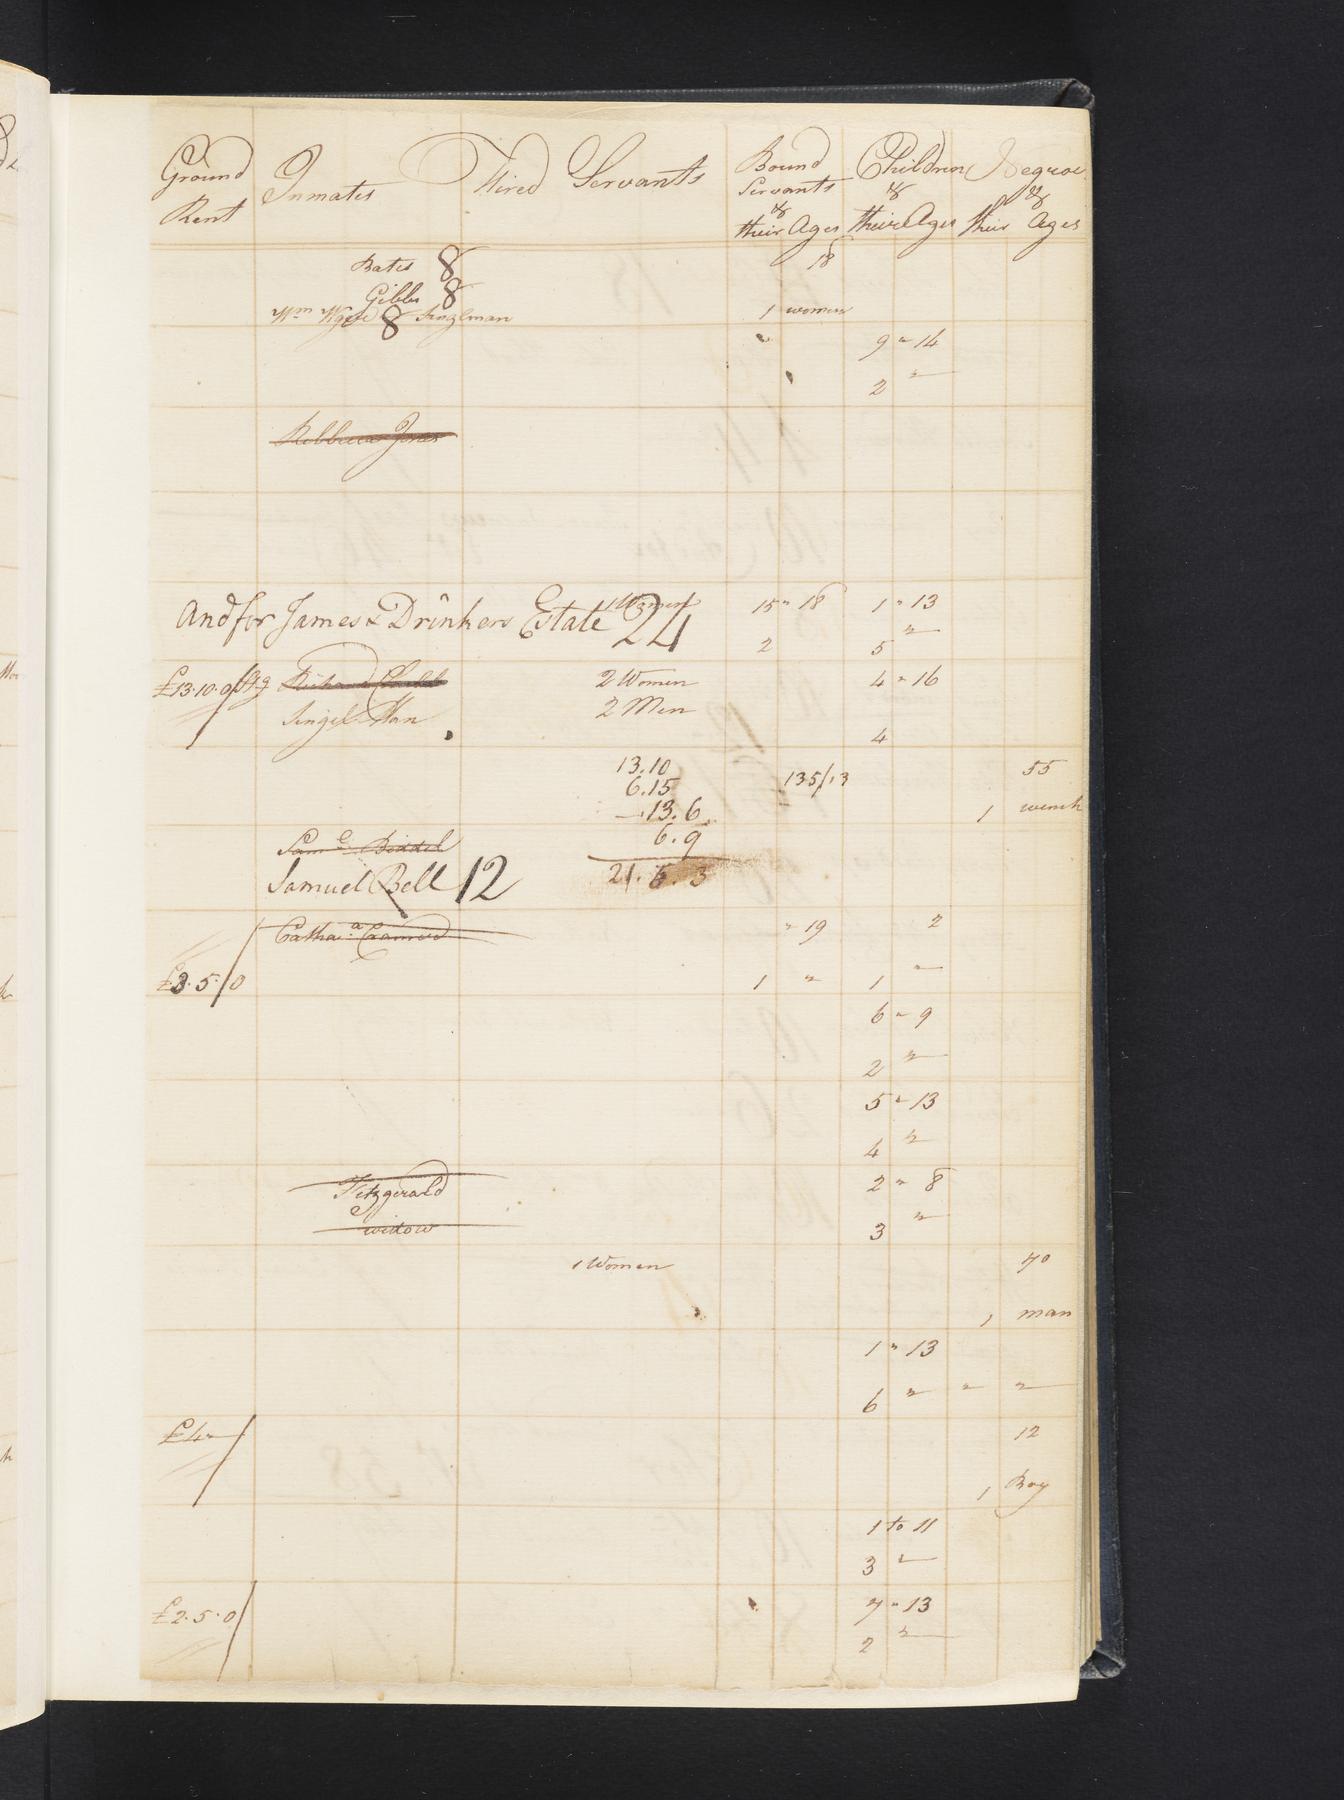 Ground Rent | Inmates | Hired Servants | Bound Servants & their Ages | Children & their Ages | Negroes & their Ages
Bates 8 | 18
Gibbs 8
Wm 8 Singlman | 1 women
9 " 14
2 "
Rebbecca Jones
1 Women | 15 " 18 | 1 " 13
And for James & Drinkers Estate 24
2 | 5 "
£13.10.0 Stg | Richard | 2 Women | 4 " 16
Singel Man | 2 Men
4
13.10 | 135/13 | 55
6.15
13.6 | 1 wench
6.9
Saml Biddel
Samuel Bell 12 | 21.5.3
Catha | " 19 | 2
£3.5/0 | 1 " | 1 "
6 " 9
2 "
5 " 13
4 "
Fitzgerald | 2 " 8
widow | 3 "
1 Women | 70
1 man
1 " 13
6 " " "
£4 " | 12
1 Boy
1 to 11
3 "
£2.5.0 | 7 " 13
2 "